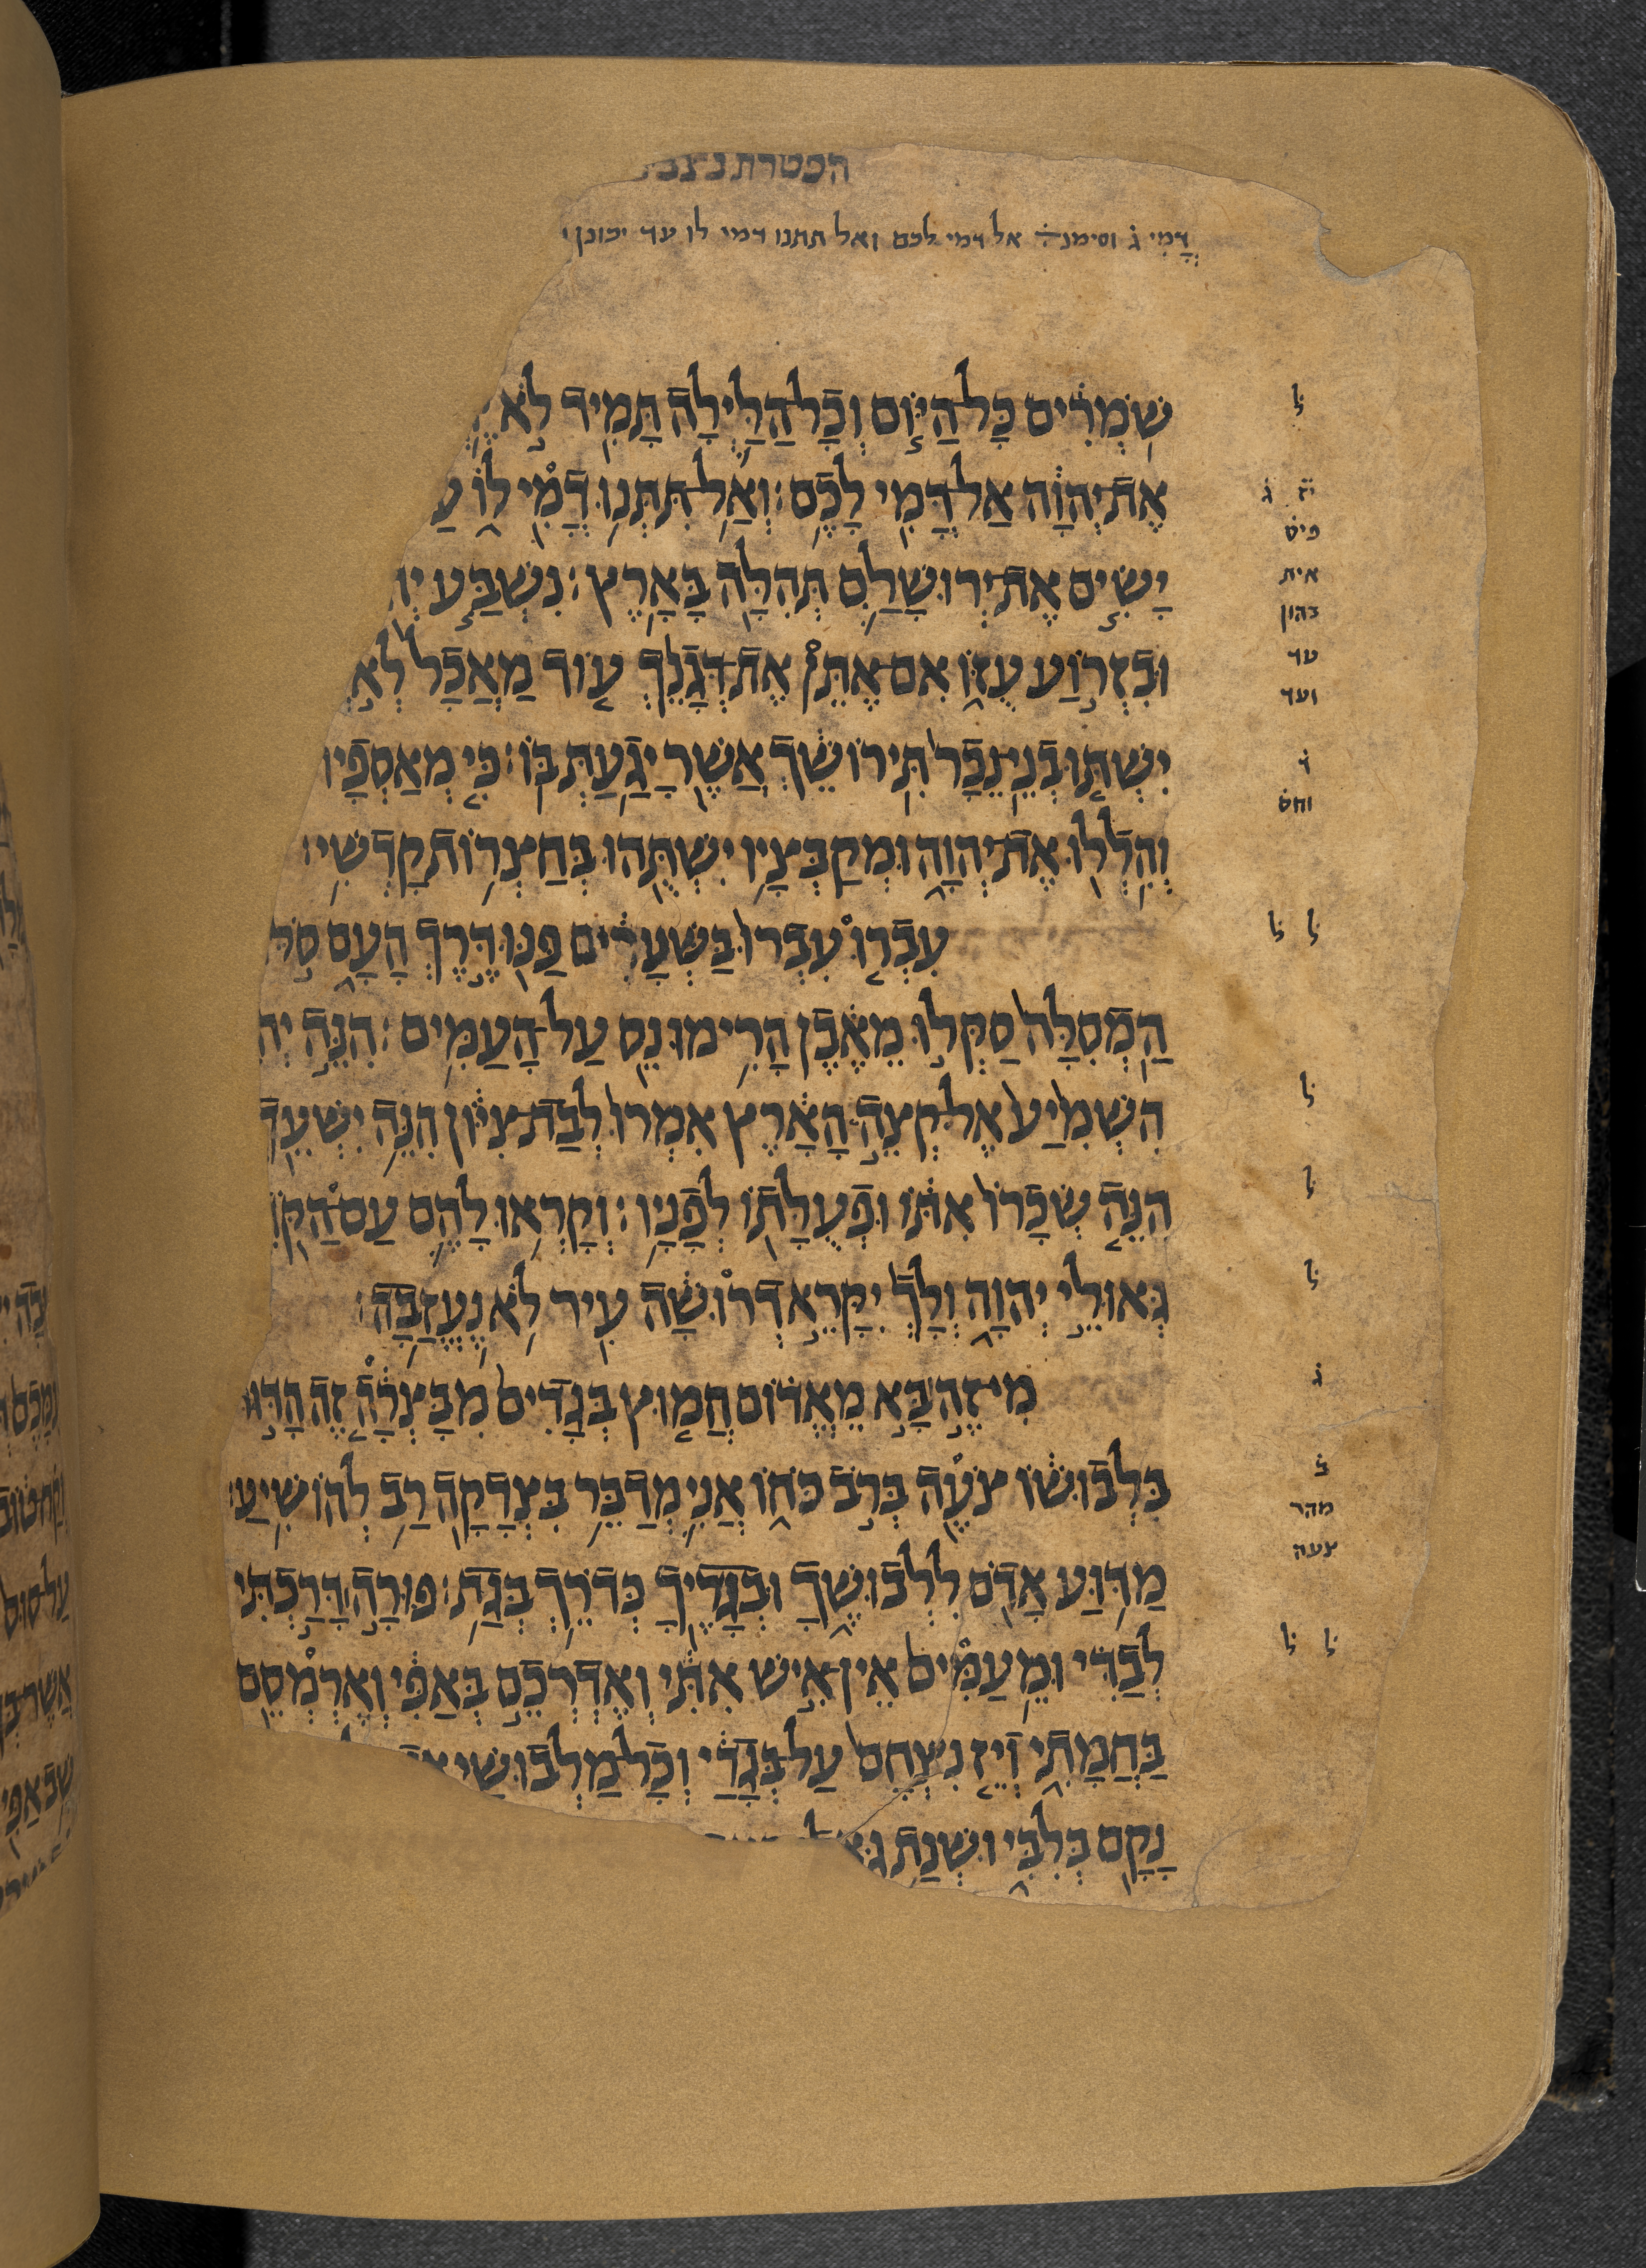 הפטרת נצבי
דֳּמִי ג֗ וסימנ֗ אל דמי לכם ואל תתנו דמי לו עד יכונן
ל֗
שֹֽׁמְרִ֔ים כׇּל־הַיּ֧וֹם וְכׇל־הַלַּ֛יְלָה תָּמִ֖יד לֹ֣א
יׄאׄ ג֗
אֶת־יְהוָ֔ה אַל־דֳּמִ֖י לָכֶֽם׃ וְאַֽל־תִּתְּנ֥וּ דֳמִ֖י ל֑וֹ עַ
פיס
יָשִׂ֧ים אֶת־יְרֽוּשָׁלִַ֛ם תְּהִלָּ֖ה בָּאָֽרֶץ׃ נִשְׁבַּ֧ע יְ
אית
בהון
וּבִזְר֣וֹעַ עֻזּ֑וֹ אִם־אֶתֵּן֩ אֶת־דְּגָנֵ֨ךְ ע֤וֹד מַֽאֲכָל֙ לְא
עד
ועד
יִשְׁתּ֤וּ בְנֵֽי־נֵכָר֙ תִּֽירוֹשֵׁ֔ךְ אֲשֶׁ֥ר יָגַ֖עַתְּ בּֽוֹ׃ כִּ֤י מְאַסְפָיו
ד֗
וחס
וְהִֽלְל֖וּ אֶת־יְהוָ֑ה וּמְקַבְּצָ֥יו יִשְׁתֻּ֖הוּ בְּחַצְר֥וֹת קׇדְשִֽׁי׃
ל֗ ל֗
עִבְר֤וּ עִבְרוּ֙ בַּשְּׁעָרִ֔ים פַּנּ֖וּ דֶּ֣רֶךְ הָעָ֑ם סֹ֣לּ
הַֽמְסִלָּה֙ סַקְּל֣וּ מֵאֶ֔בֶן הָרִ֥ימוּ נֵ֖ס עַל־הָעַמִּֽים׃ הִנֵּ֣ה יְה
ל֗
הִשְׁמִ֙יעַ֙ אֶל־קְצֵ֣ה הָאָ֔רֶץ אִמְרוּ֙ לְבַת־צִיּ֔וֹן הִנֵּ֥ה יִשְׁעֵ֖ךְ
ל֗
הִנֵּ֤ה שְׂכָרוֹ֙ אִתּ֔וֹ וּפְעֻלָּת֖וֹ לְפָנָֽיו׃ וְקָרְא֥וּ לָהֶ֛ם עַם־הַקֹּ
ל֗
גְּאוּלֵ֣י יְהוָ֑ה וְלָךְ֙ יִקָּרֵ֣א דְרוּשָׁ֔ה עִ֖יר לֹ֥א נֶעֱזָֽבָה׃
ג֗
מִי־זֶ֣ה׀ בָּ֣א מֵאֱד֗וֹם חֲמ֤וּץ בְּגָדִים֙ מִבׇּצְרָ֔ה זֶ֚ה הָד֣וּר
ב֗
בִּלְבוּשׁ֔וֹ צֹעֶ֖ה בְּרֹ֣ב כֹּח֑וֹ אֲנִ֛י מְדַבֵּ֥ר בִּצְדָקָ֖ה רַ֥ב לְהוֹשִֽׁיעַ׃
מהר
צעה
מַדּ֥וּעַ אָדֹ֖ם לִלְבוּשֶׁ֑ךָ וּבְגָדֶ֖יךָ כְּדֹרֵ֥ךְ בְּגַֽת׃ פּוּרָ֣ה׀ דָּרַ֣כְתִּי
ל֗ ל֗
לְבַדִּ֗י וּמֵֽעַמִּים֙ אֵֽין־אִ֣ישׁ אִתִּ֔י וְאֶדְרְכֵ֣ם בְּאַפִּ֔י וְאֶרְמְסֵ֖ם
בַּחֲמָתִ֑י וְיֵ֤ז נִצְחָם֙ עַל־בְּגָדַ֔י וְכׇל־מַלְבּוּשַׁ֖י
נָקָ֖ם בְּלִבִּ֑י וּשְׁנַ֥ת